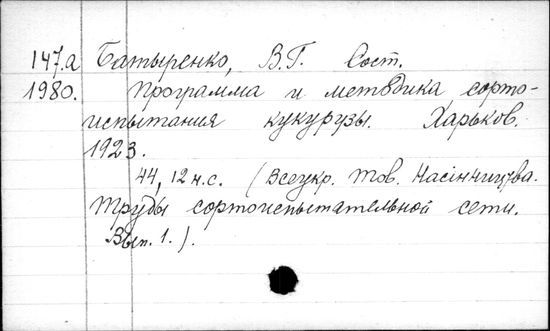 147.a Батыренко, В.Г. Сост.
1980. Программа и методика сорто-
испытания кукурузы. Харьков.
1923.
44, 12 н.с. (Всеукр. Тов. Насінництва.
Труды сортоиспытательной сети.
Вып. 1.).